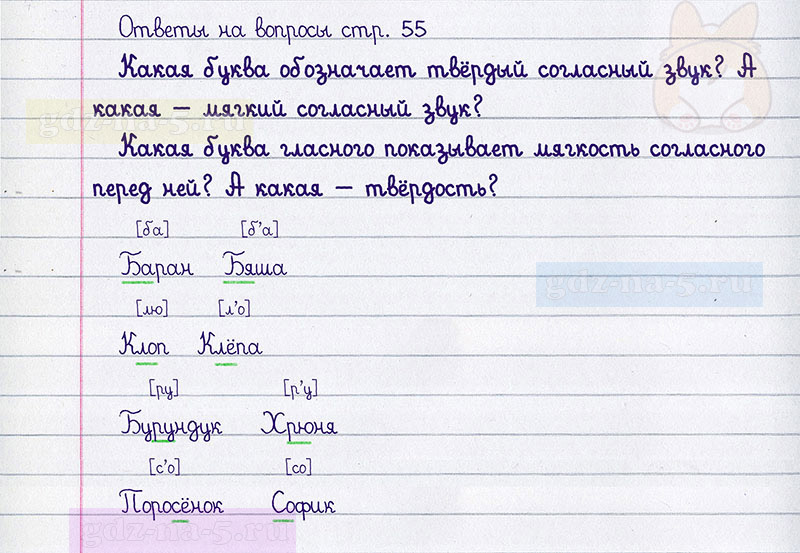 Ответы на вопросы стр. 55
Какая буква обозначает твёрдый согласный звук? А
какая – мягкий согласный звук?
gdz-na-5.ru
Какая буква гласного показывает мягкость согласного
перед ней? А какая – твёрдость?
[ба] [б’а]
Баран Бяша
gdz-na-5.ru
[лю] [л’о]
Клоп Клёпа
[ру] [р’у]
Бурундук Хрюня
[с’о] [со]
Поросёнок Софик
gdz-na-5.ru